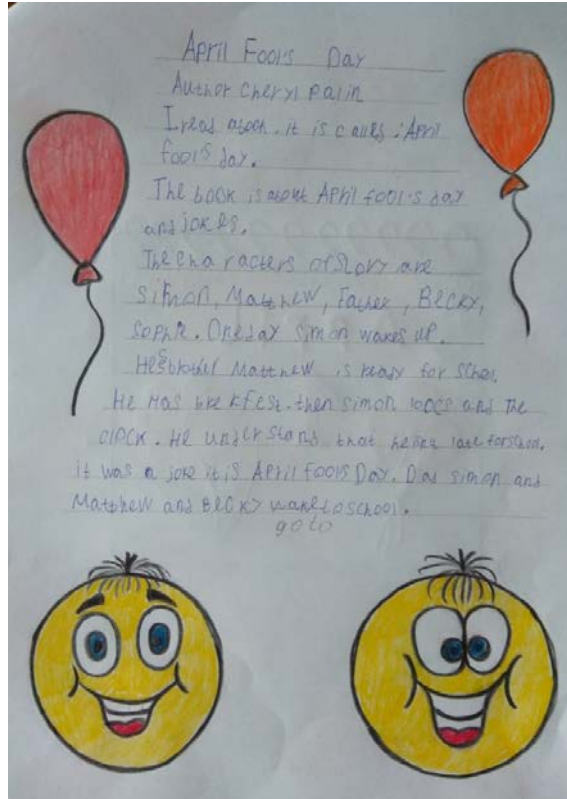 April Fool's Day
Author Cheryl Palin
I read abook. it is called : April
fool's day.
The book is about April fool's day
and jokes.
The characters of story are
simon, Matthew, Father, Becky,
Sophie. One day simon wakes up.
Hes brother Matthew is ready for school
He has brekfest. then simon looks and the
clock. He understand that late for school.
it was a joke it is April Fools Day. Dad simon and
Matthew and Becky wake to school.
go to